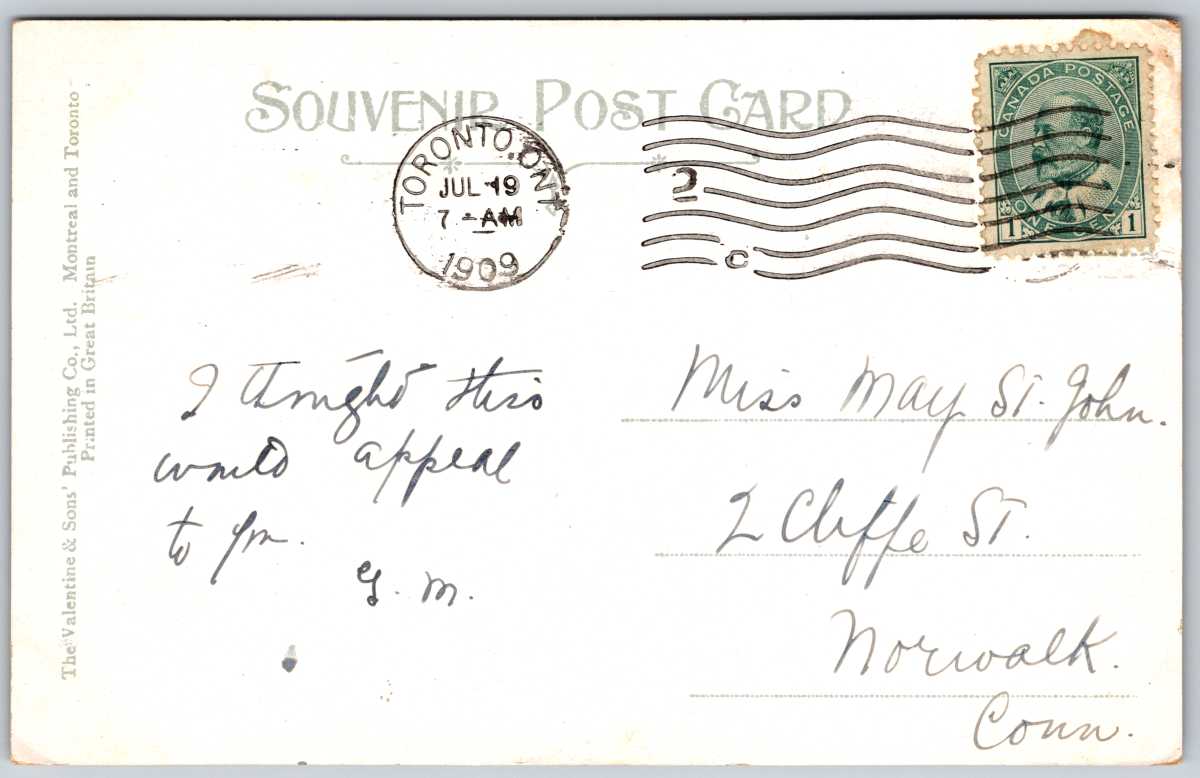 SOUVENIR POST CARD
The Valentine & Sons' Publishing Co., Ltd. Montreal and Toronto
Printed in Great Britain
TORONTO. ONT
JUL 19
7 - AM
1909
2
C
CANADA POSTAGE
1 ONE CENT 1
I thought this
would appeal
to you.
G. M.
Miss May St. John.
2 Cliffe St.
Norwalk.
Conn.